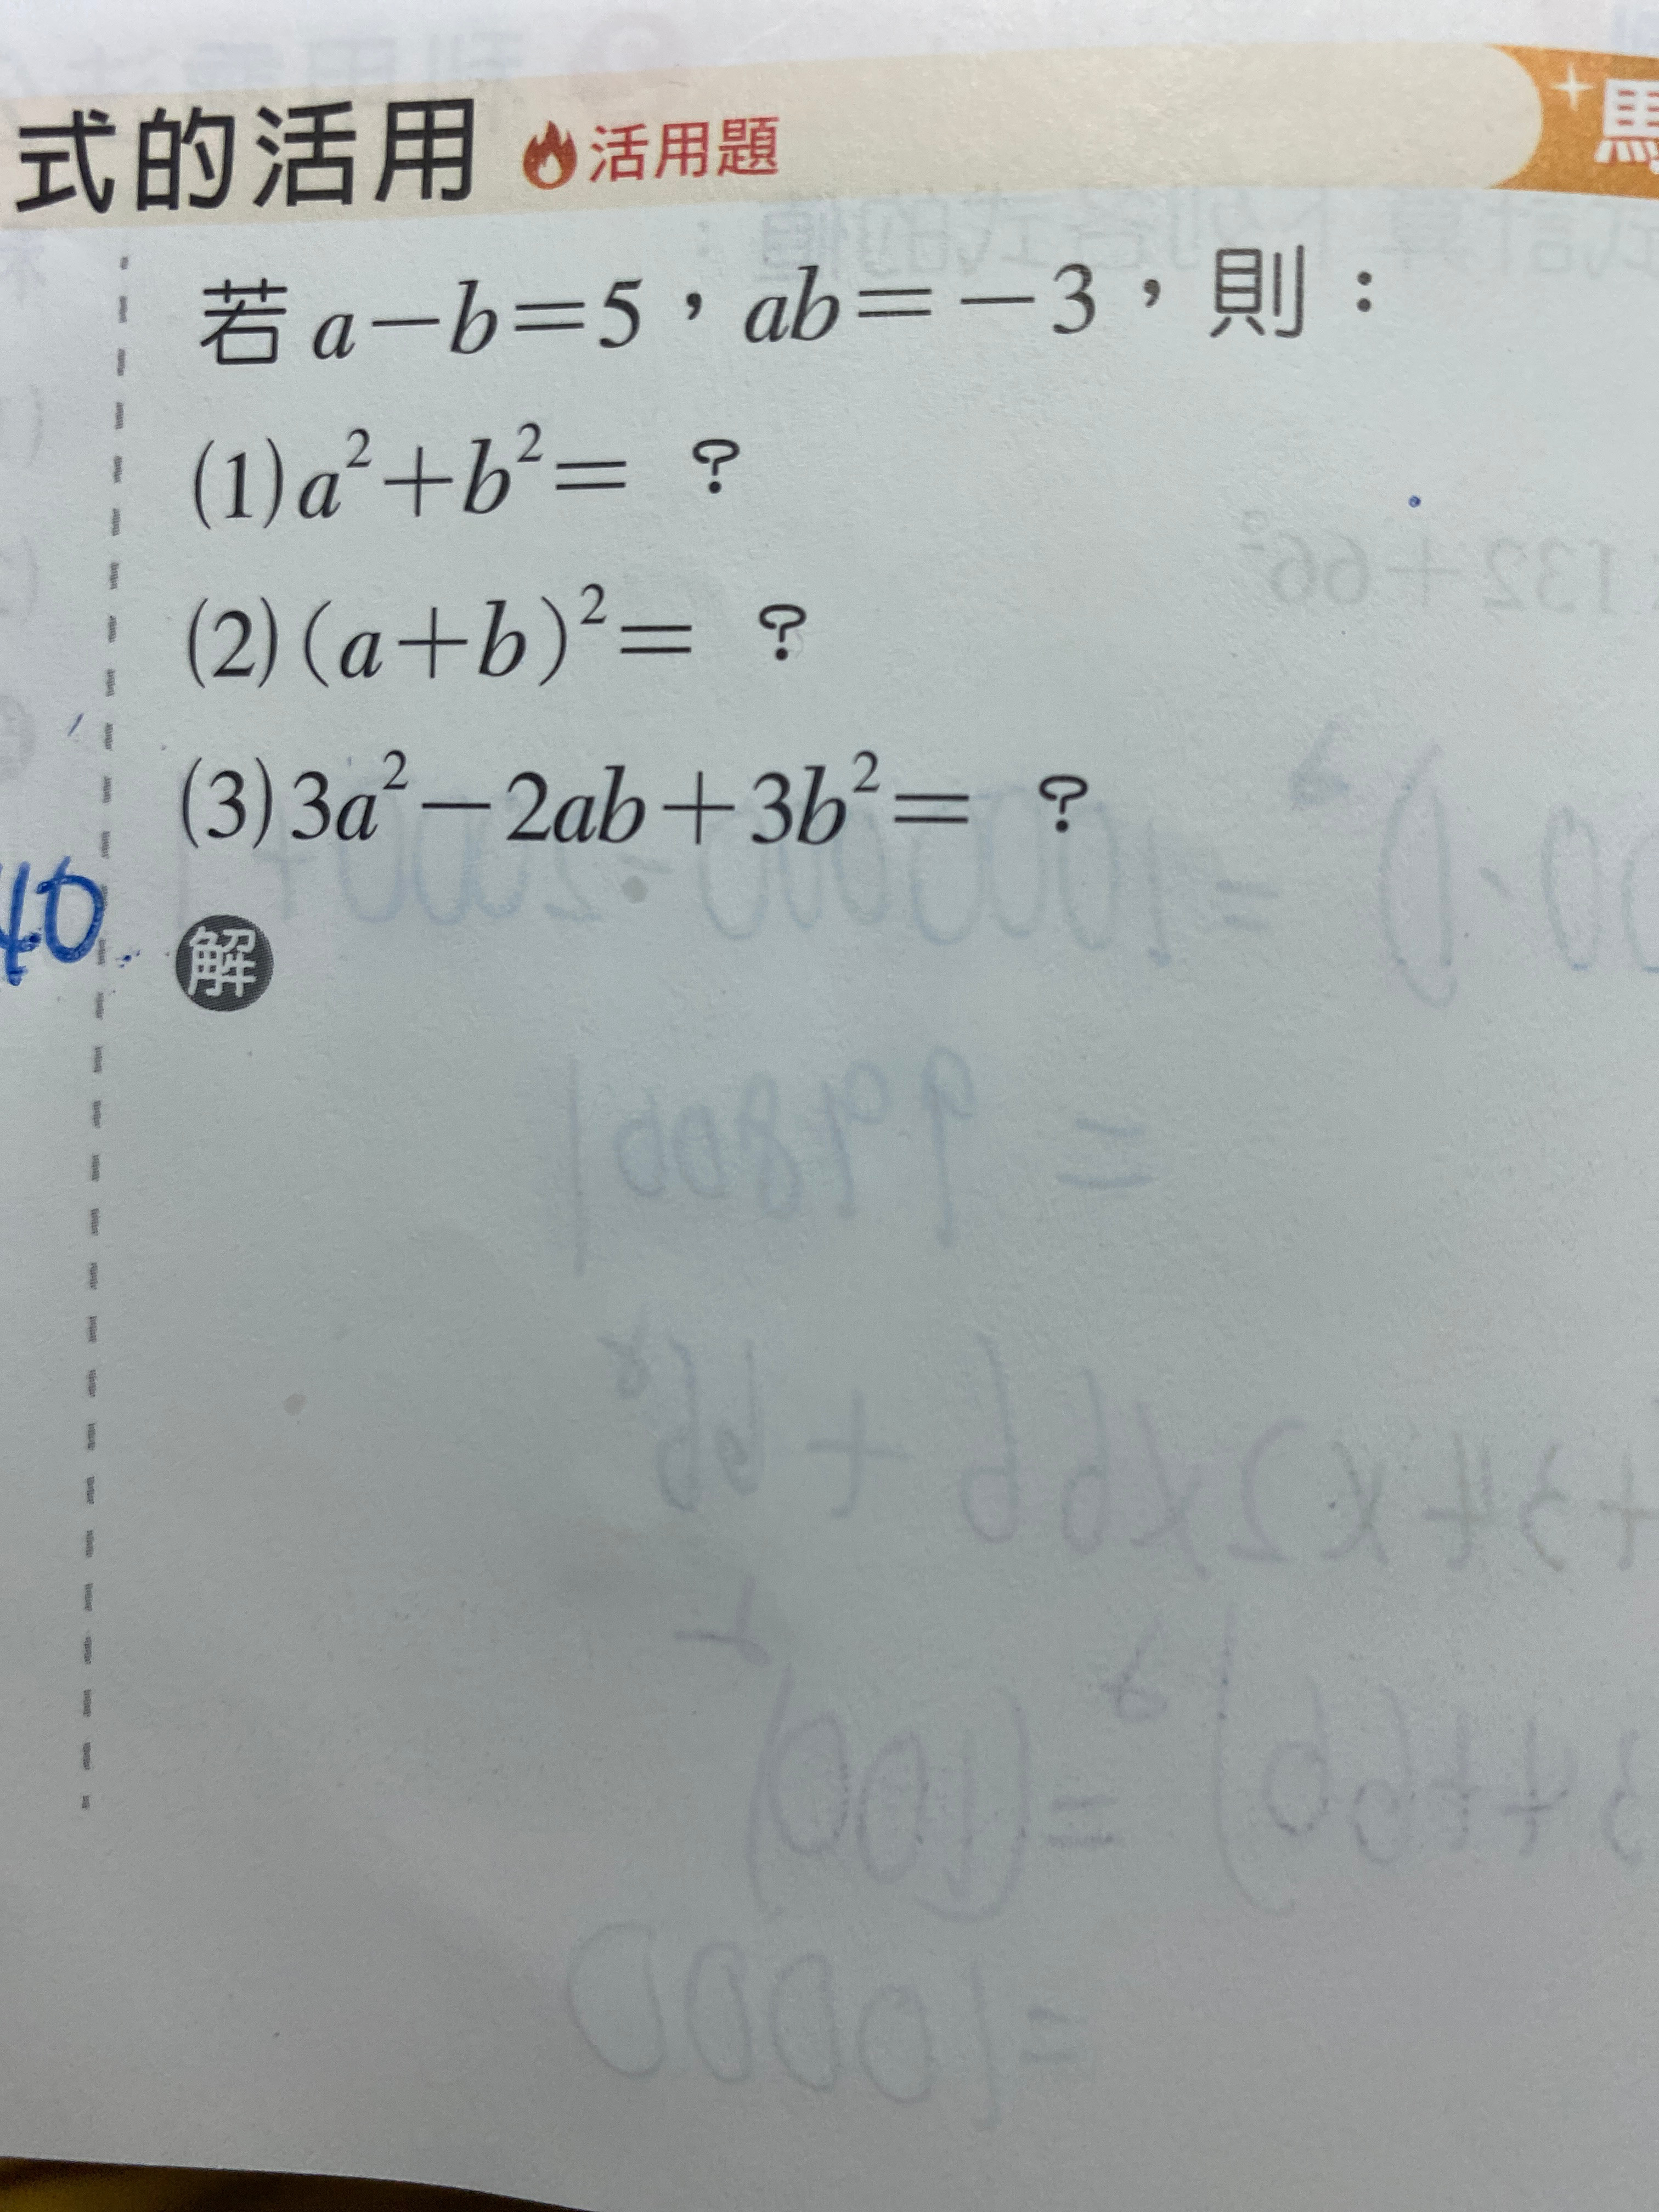 式的活用 活用題 馬
若 a－b＝5，ab＝－3，則：
(1) a²＋b²＝ ？
(2) (a＋b)²＝ ？
(3) 3a²－2ab＋3b²＝ ？
40
解